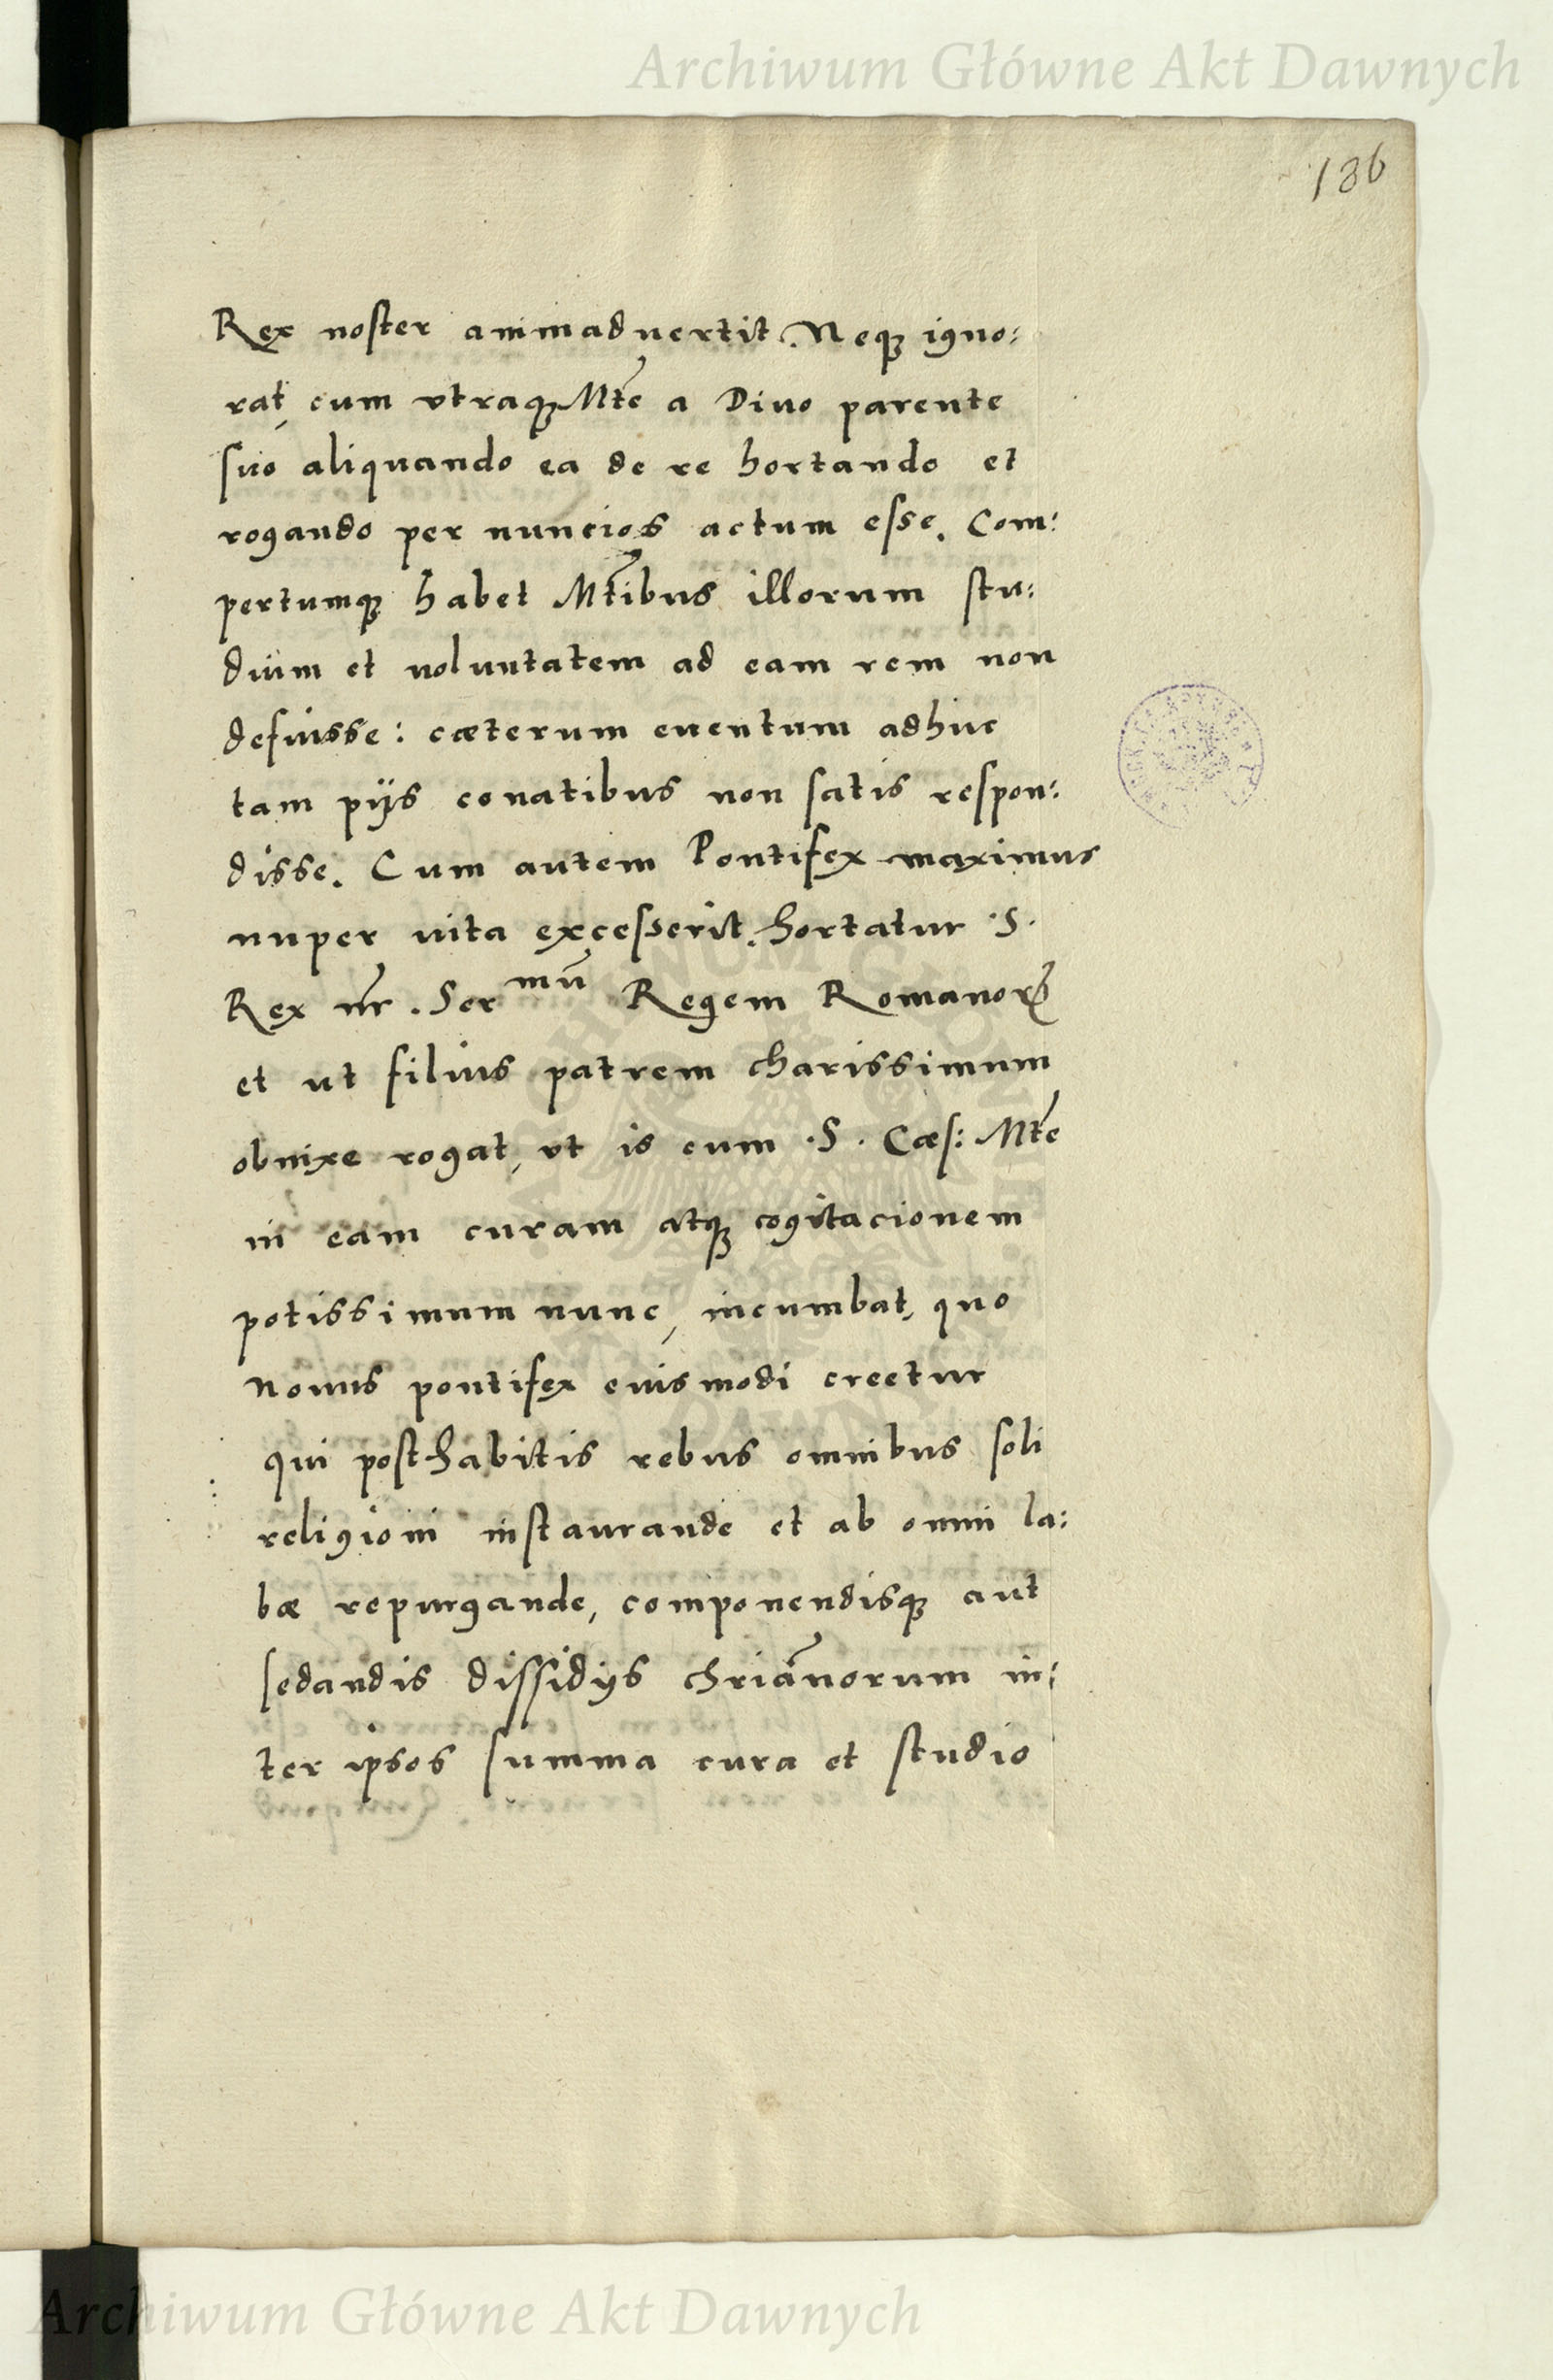 Archiwum Główne Akt Dawnych
186
Rex noster animaduertit. Neqꝫ igno:
rat, cum vtraqꝫ Mte a Diuo parente
suo aliquando ea de re hortando et
rogando per nuncios actum esse. Com:
pertumqꝫ habet Mtibus illorum stu:
dium et uoluntatem ad eam rem non
defuisse: cæterum euentum adhuc
tam pijs conatibus non satis respon:
disse. Cum autem Pontifex maximus
nuper uita excesserit. hortatur .S.
Rex nr̄. Ser mū Regem Romanoꝝ
et ut filius patrem charissimum
obnixe rogat, vt is cum .S. Cæs: Mte
in eam curam atqꝫ cogitacionem
potissimum nunc, incumbat, quo
Nouus pontifex euismodi creetur
qui posthabitis rebus omnibus soli
religioni instaurande et ab omni la:
bæ repurgande, componendisqꝫ aut
sedandis dissidijs chriānorum in:
ter ipsos summa cura et studio
Archiwum Główne Akt Dawnych